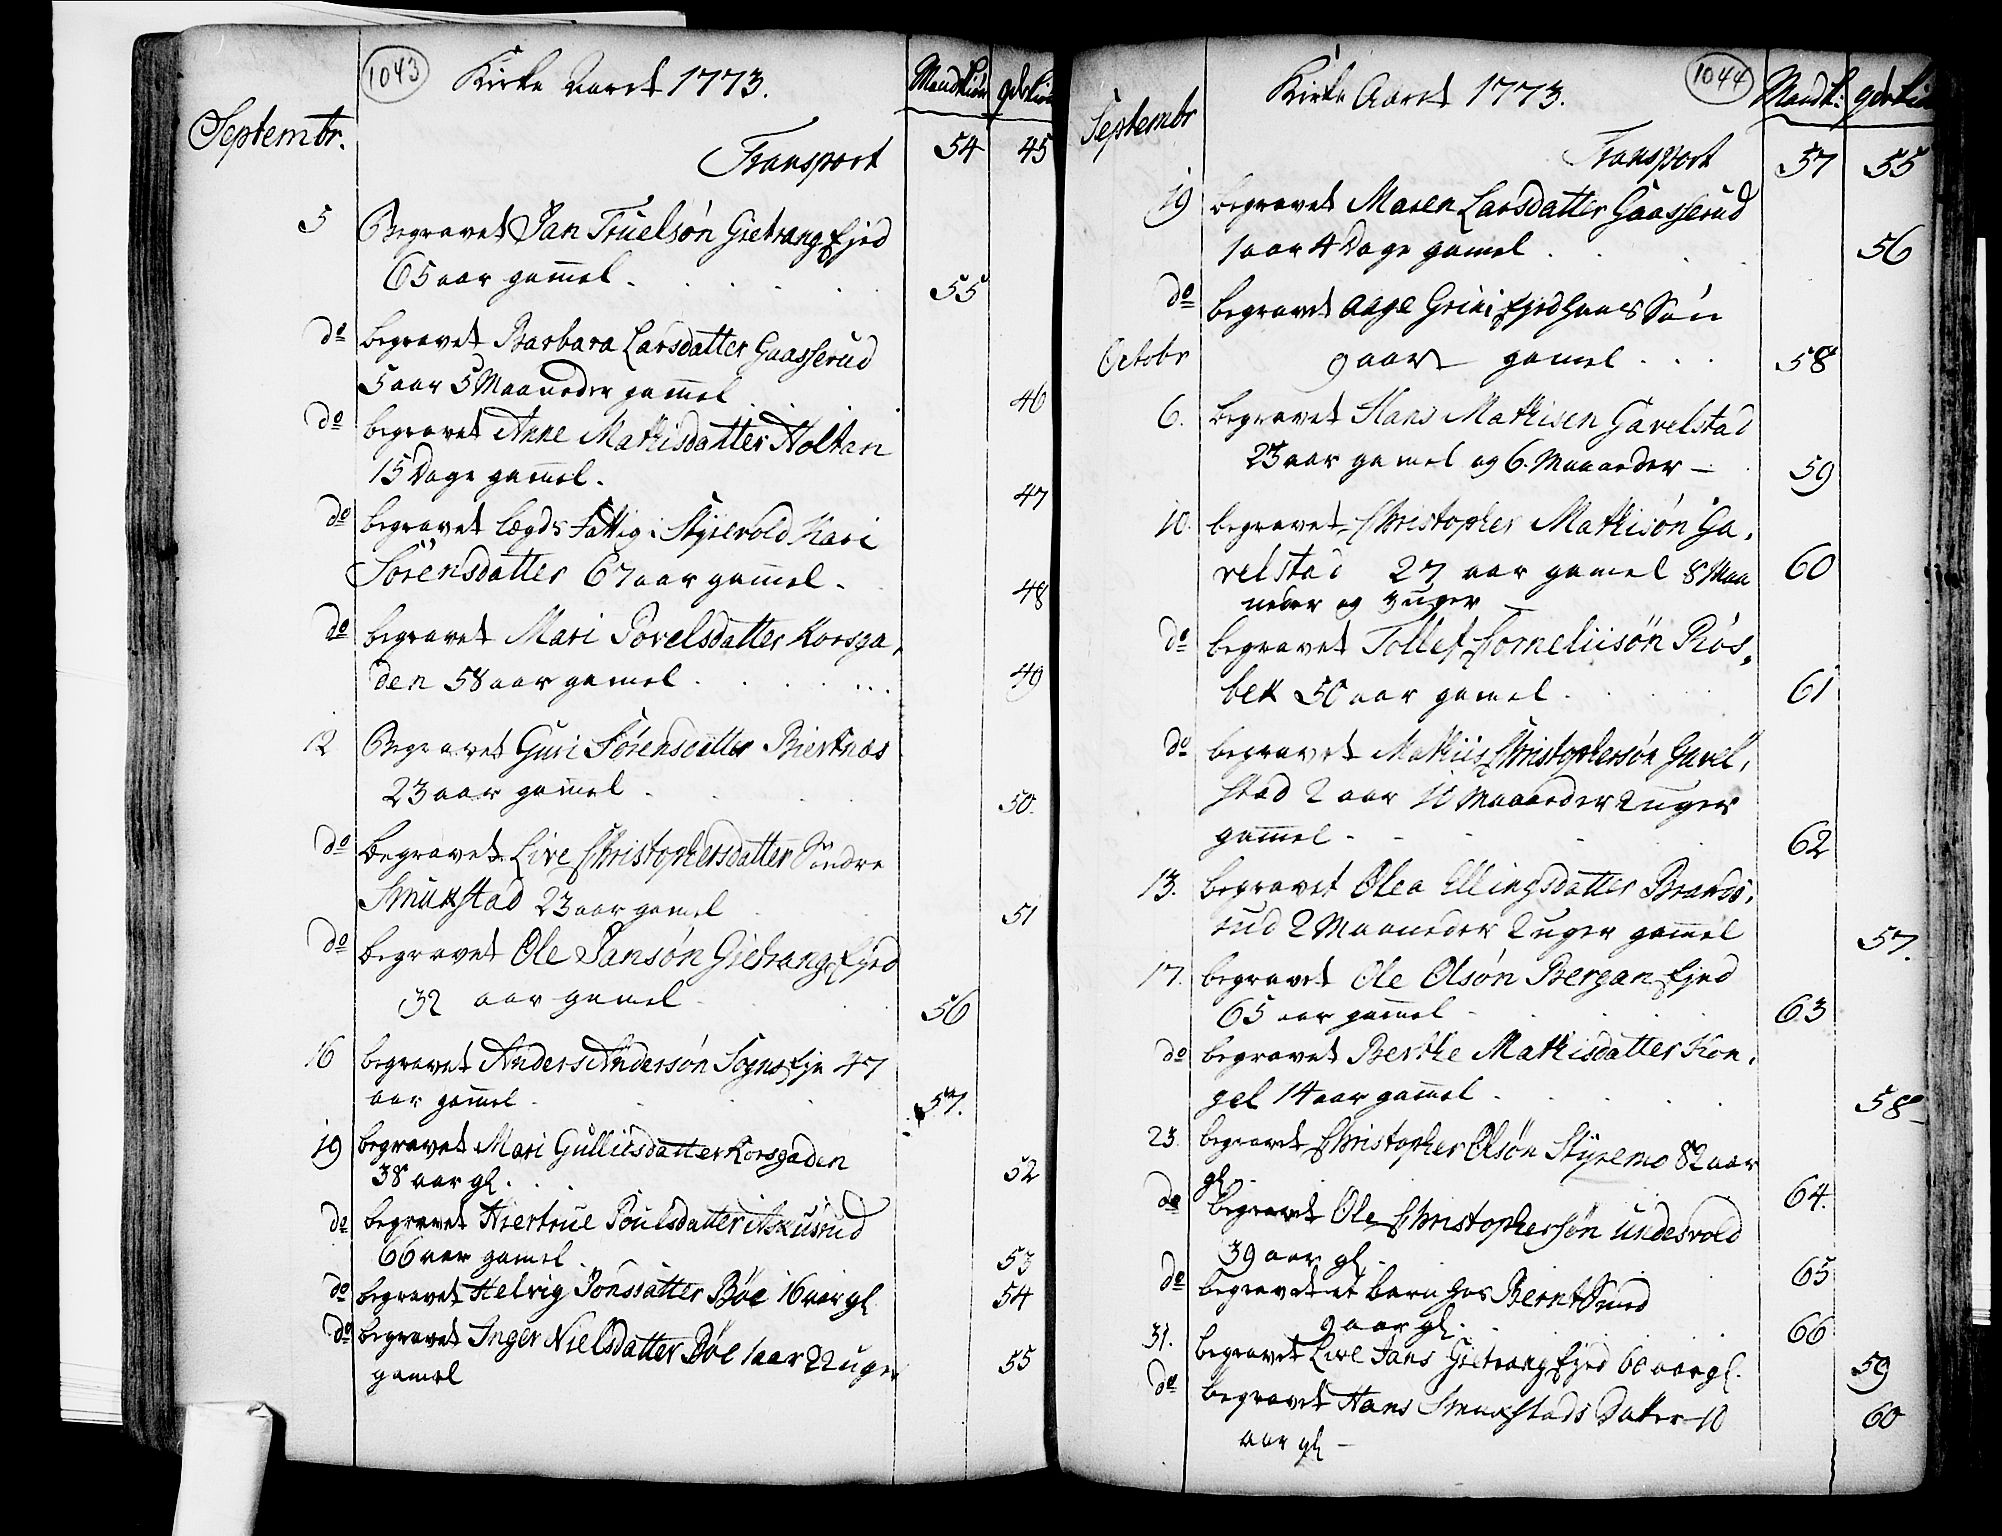 1043
Kirke Aaret 1773.
Mandkiön qvekiön
Septembr.
Transport 54 45
5 Begravet Jan Truelsøn Gietrang Ejed
65 aar gam̄el . 55
do begravet Barbara Larsdatter Gaasserud
5 aar 5 Maaneder gam̄el 46
do begravet Anne Mathisdatter Holtan
15 Dage gam̄el. 47
do begravet Lægds Fattig: Styrvold Kari
Sörensdatter 67 aar gam̄el. 48
do begravet Mari Povelsdatter Korsga,
den 58 aar gamel . 49
12 Begravet Guri Sörensdatter Bierknæs
23 aar gam̄el . 50.
do begravet Live Christophersdatter Söndre
Smukstad 23 aar gamel 51
do begravet Ole Jansøn Gietrang Ejed
32 aar gamel . 56
16 begravet Anders Andersøn Sogns Eje 47
aar gam̄el . 57.
19 begravet Mari Gulliksdatter Korsgaden
38 aar gl. 52
do begravet Giertrue Poulsdatter Askusrud
66 aar gamel . 53
do begravet Helvig Jonsdatter Bøe 16 aar gl 54
do begravet Inger Nielsdatter Bøe 1 aar 22 uger
gamel 55
1044
Kirke Aaret 1773.
Mandk: qvekiön
Septembr
Transport 57 55
19 begravet Maren Larsdatter Gaasserud
1 aar 4 Dage gamel . 56
do begravet Aage Grini Ejed hans Søn
Octobr 9 aar gamel . . . 58
6. begravet Hans Mathisen Gavelstad
23 aar gamel og 6. Maaneder 59
10. begravet Christopher Mathisøn Ga,
velstad 27 aar gamel 8 Maa 60
neder og 3 uger
do begravet Tollef Corneliisøn Rös,
bek 50 aar gamel . 61
do begravet Mathiis Christophersøn Gavel,
stad 2 aar 11 Maaneder 2 uger
gam̄el . 62
13. begravet Olea Ellingsdatter Brands,
rud 2 Maaneder 2 uger gam̄el 57.
17. begravet Ole Olsøn Bergan Ejed
65 aar gam̄el . 63
do begravet Berthe Mathisdatter Kon,
gel 14 aar gam̄el . 58
23. begravet Christopher Olsøn Styremo 82 aar
gl. 64.
do begravet Ole Christophersøn Undesvold
39 aar gl. 65
do begravet et barn hos Bernt Smed
9 aar gl. 66
31. begravet Live Jans Gietrang Ejed 60 aar gl. 59
do begravet Hans Smukstads Datter 10 60
aar gl